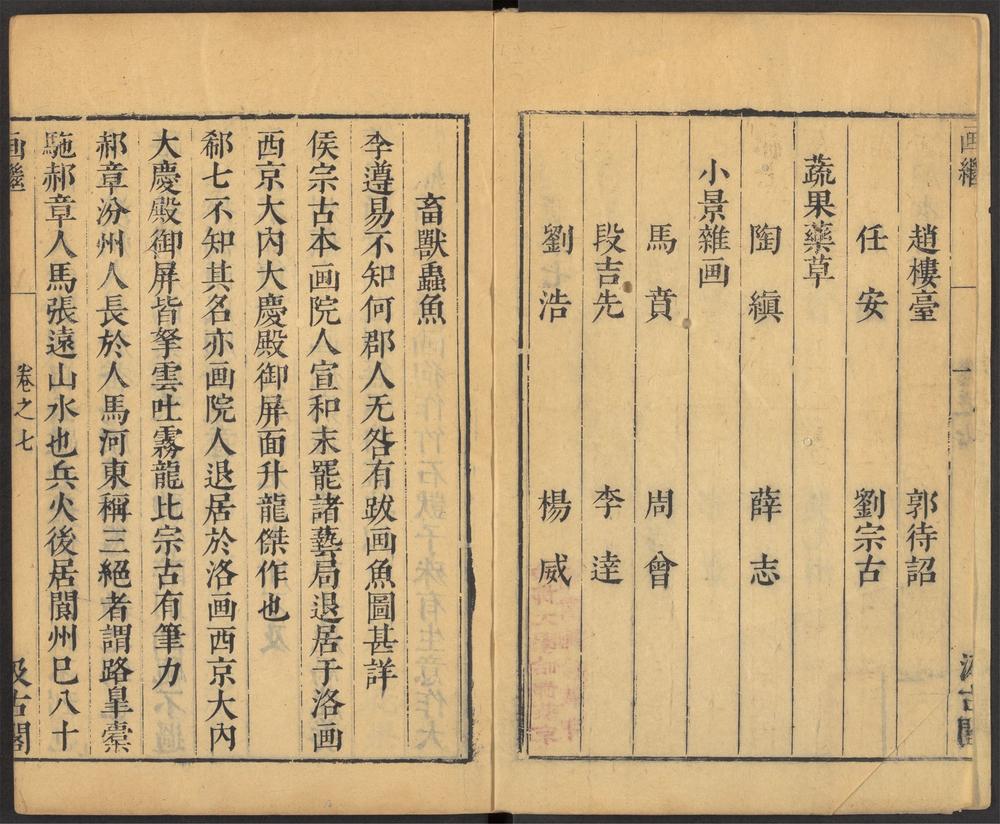 画繼
趙樓臺 郭待詔
任安 劉宗古
蔬果藥草
陶縝 薛志
小景雜画
馬賁 周曾
段吉先 李達
劉浩 楊威
畜獸蟲魚
李遵易不知何郡人无咎有跋画魚圖甚詳
侯宗古本画院人宣和末罷諸藝局退居于洛画
西京大內大慶殿御屏面升龍傑作也
郗七不知其名亦画院人退居於洛画西京大內
大慶殿御屏皆拏雲吐霧龍比宗古有筆力
郝章汾州人長於人馬河東稱三絕者謂路皐橐
駞郝章人馬張遠山水也兵火後居閬州巳八十
画繼 卷之七 汲古閣